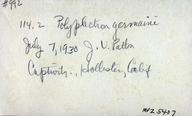 #992
114.2 Polyplectron germaini
July 7, 1930 J. V. Patton
Captivity., Hollister, Calif